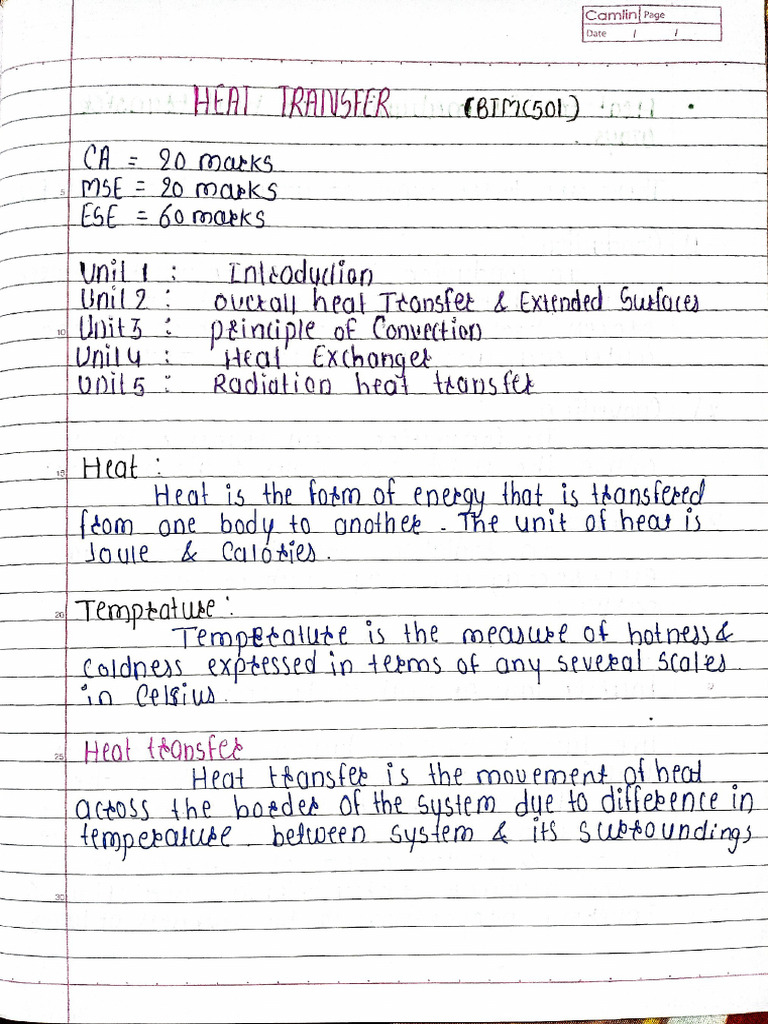 Camlin Page
Date / /
HEAT TRANSFER (BTMC501)
CA = 20 marks
MSE = 20 marks
ESE = 60 marks
Unit 1 : Introduction
Unit 2 : overall heat Transfer & Extended Surfaces
Unit 3 : principle of Convection
Unit 4 : Heat Exchanger
Unit 5 : Radiation heat transfer
Heat :
Heat is the form of energy that is transfered
from one body to another. The unit of heat is
Joule & Calories.
Temprature :
Temperature is the measure of hotness &
coldness expressed in terms of any several scales
in Celsius.
Heat transfer
Heat transfer is the movement of heat
across the border of the system due to difference in
temperature between system & its surroundings